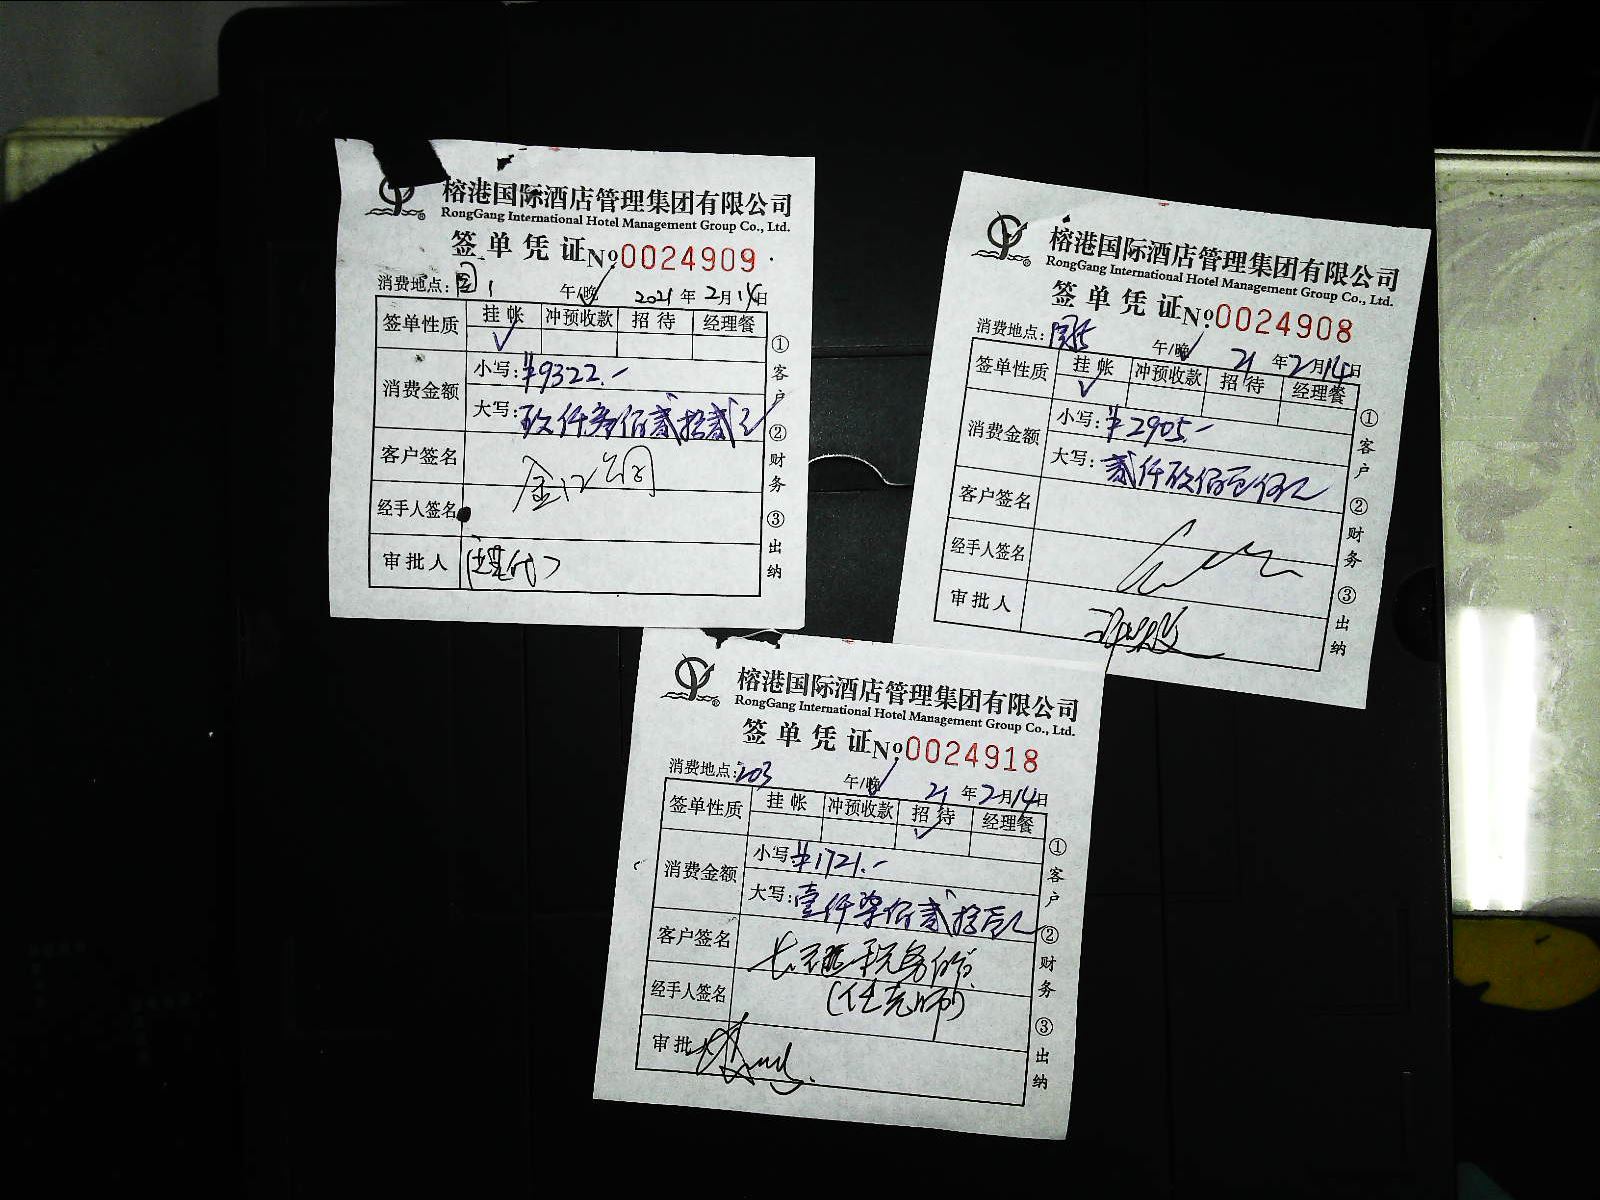 榕港国际酒店管理集团有限公司
RongGang International Hotel Management Group Co., Ltd.
签单凭证 No 0024909
消费地点: 午/晚 2021年2月14日
签单性质 挂帐 冲预收款 招待 经理餐
消费金额 小写:¥9322.-
大写:玖仟叁佰贰拾贰元
客户签名
经手人签名
审批人
①客户 ②财务 ③出纳
榕港国际酒店管理集团有限公司
RongGang International Hotel Management Group Co., Ltd.
签单凭证 No 0024908
消费地点: 午/晚 21年2月14日
签单性质 挂帐 冲预收款 招待 经理餐
消费金额 小写:¥2905.-
大写:贰仟玖佰零伍元
客户签名
经手人签名
审批人
①客户 ②财务 ③出纳
榕港国际酒店管理集团有限公司
RongGang International Hotel Management Group Co., Ltd.
签单凭证 No 0024918
消费地点:203 午/晚 21年2月14日
签单性质 挂帐 冲预收款 招待 经理餐
消费金额 小写:¥1721.-
大写:壹仟柒佰贰拾壹元
客户签名 税务
经手人签名 (任老师)
审批人
①客户 ②财务 ③出纳